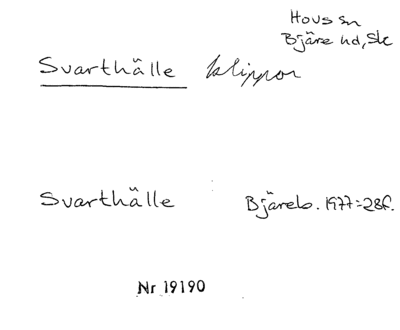 Hovs sn
Bjäre hd, Sk
Svarthälle klippor
Svarthälle Bjäreb. 1977:28f.
Nr 19190